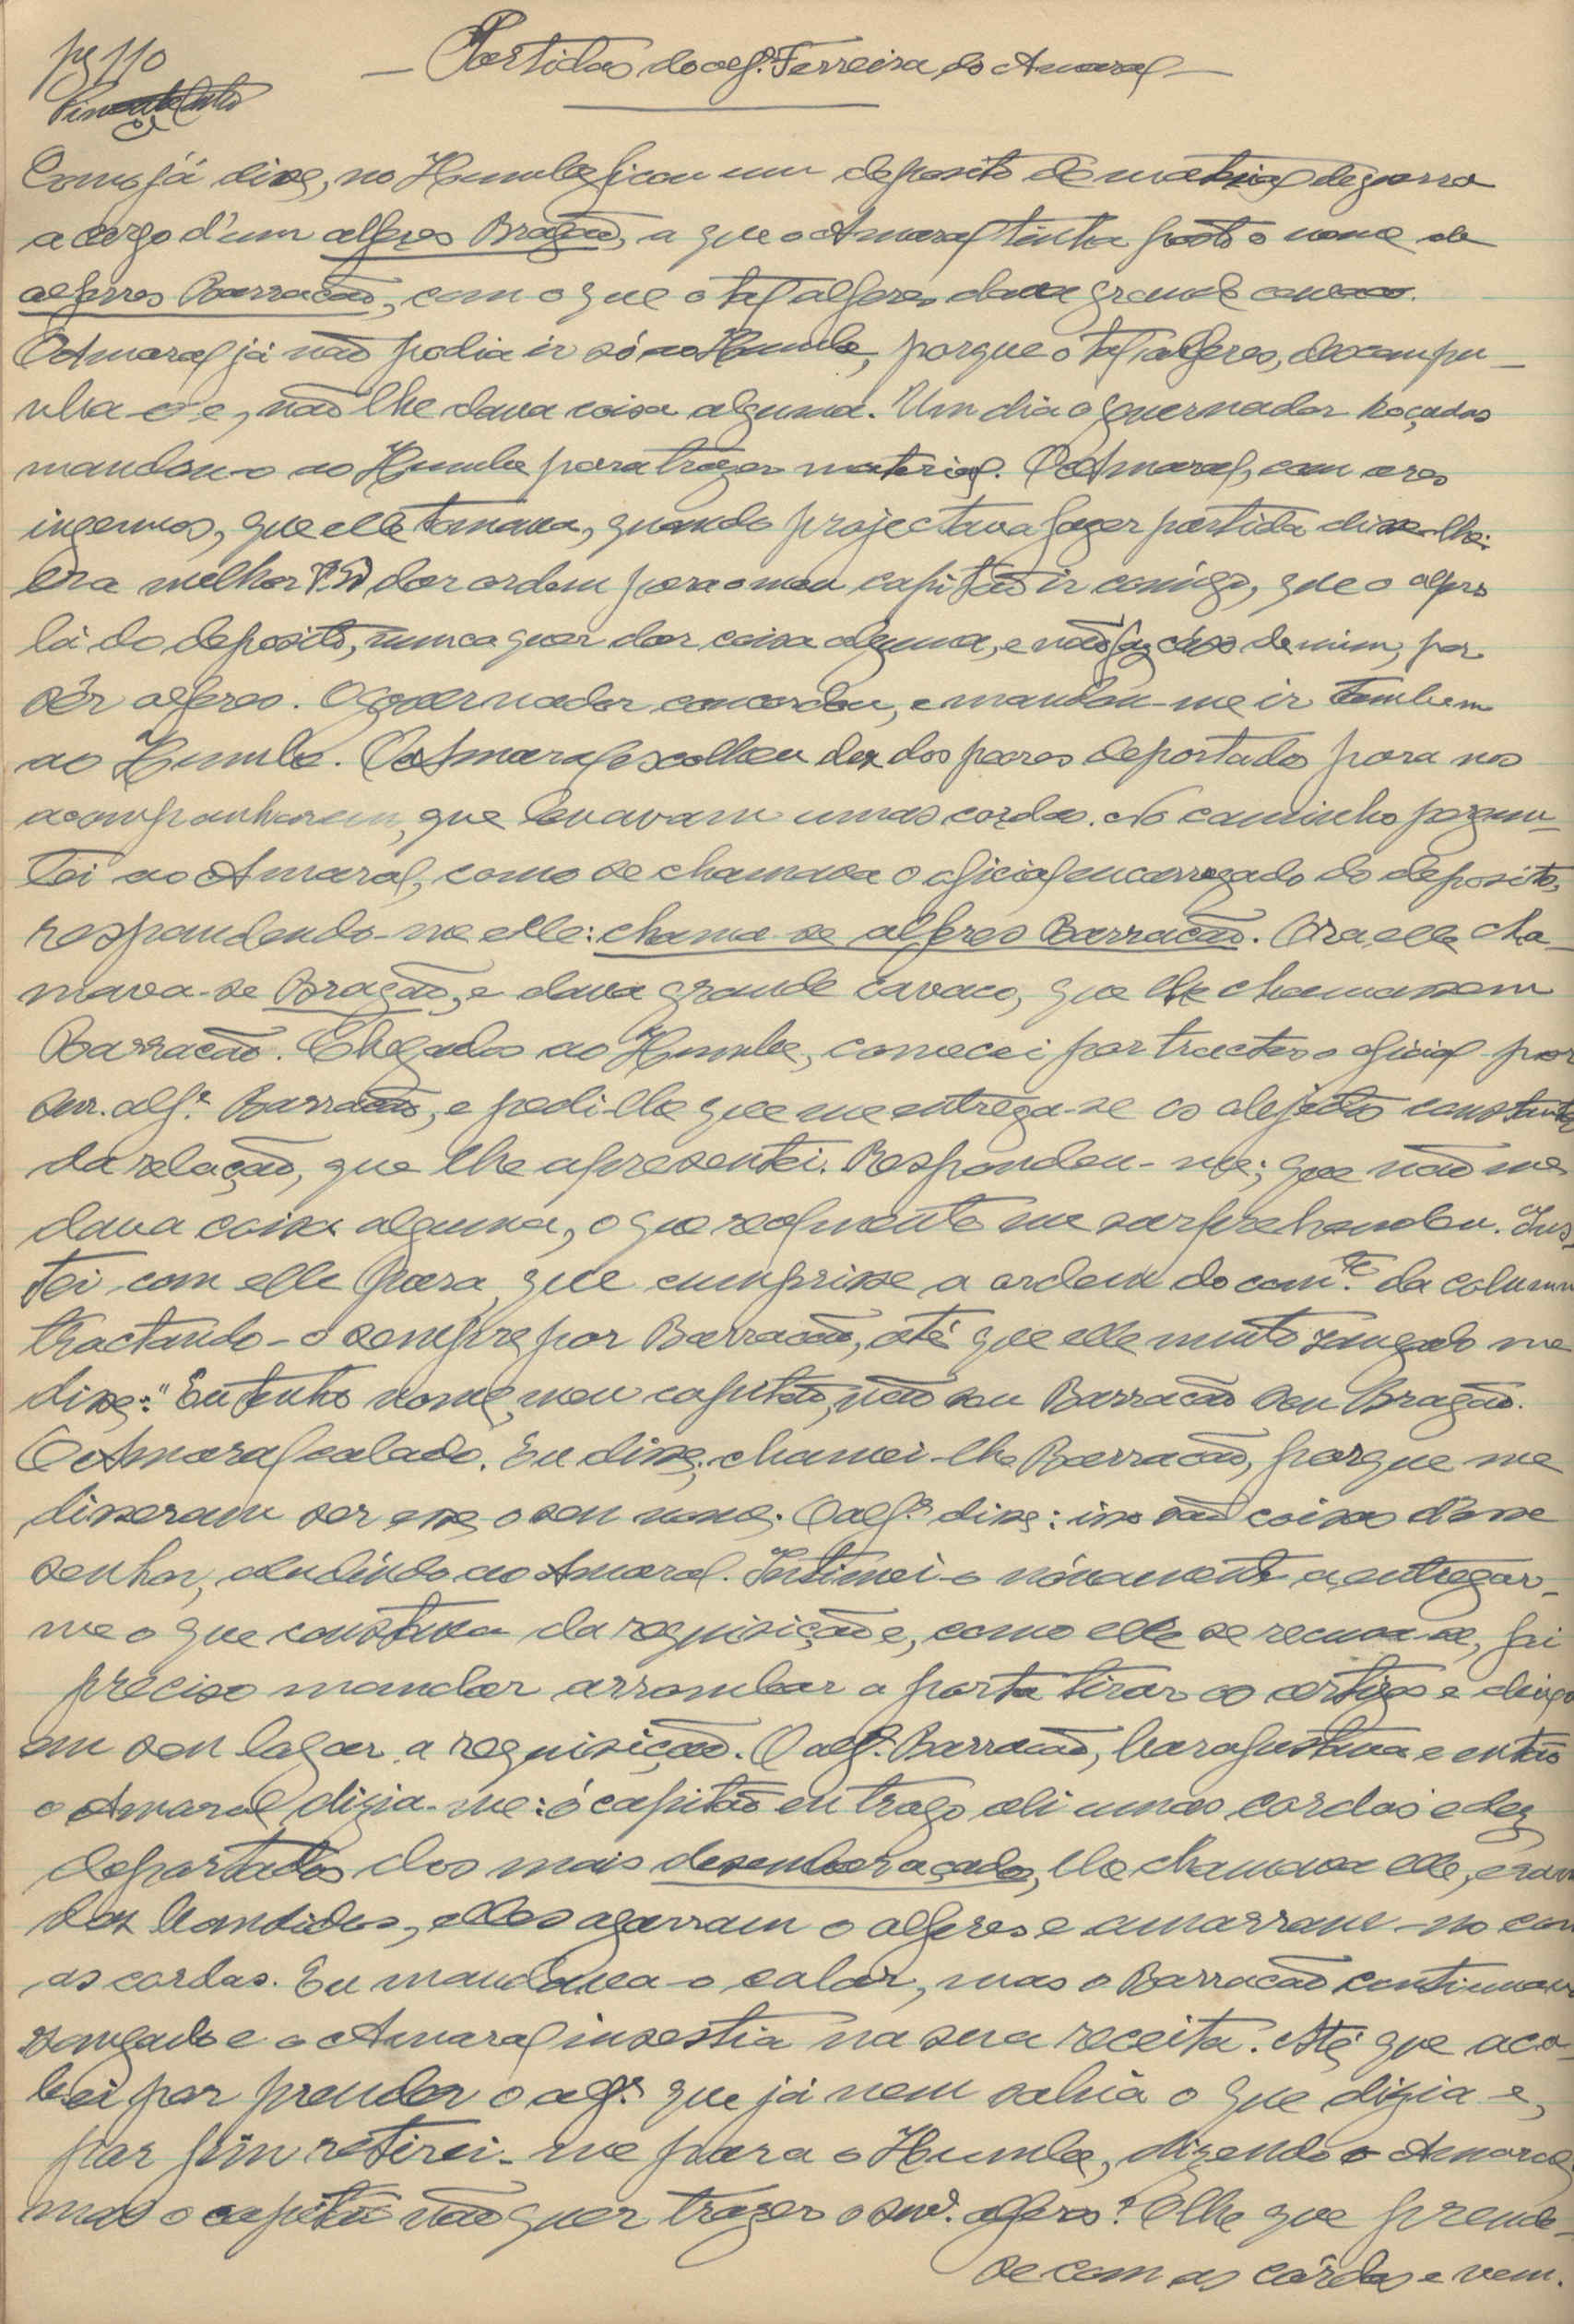 pg 110
— Partidas do alf.º Ferreira do Amaral —
Como já disse, no Humbe ficou um deposito de material de guerra
a cargo d'um alferes Bragão, a que o Amaral tinha posto o nome de
alferes Barracão, com o que o tal alferes dava grande cavaco.
O Amaral já não podia ir só ao Humbe, porque o tal alferes, descompu-
nha-o e, não lhe dava coisa alguma. Um dia o governador Roçadas
mandou-o ao Humbe para trazer material. O Amaral, com ares
ingenuos, que elle tomava, quando projectava fazer partida disse-lhe:
era melhor V. Ex.ª dar ordem para o meu capitão ir comigo, que o alferes
lá do deposito, nunca quer dar coisa alguma, e não faz caso de mim, por
sêr alferes. O governador concordou, e mandou-me ir tambem
ao Humbe. O Amaral escolheu dez dos peores deportados para nos
acompanharem, que levavam umas cordas. No caminho pergun-
tei ao Amaral, como se chamava o oficial encarregado do deposito,
respondendo-me elle: chama-se alferes Barracão. Ora elle cha-
mava-se Bragão, e dava grande cavaco, que lhe chamassem
Barracão. Chegados ao Humbe, comecei por tractar o oficial por
snr. alf.º Barracão, e pedi-lhe que me entrega-se os objectos constantes
da relação, que lhe apresentei. Respondeu-me; que não me
dava coisa alguma, o que realmente me surprehendeu. Ins-
tei com elle para que cumprisse a ordem do com.te da columna
tractando-o sempre por Barracão, até que elle muito zangado me
disse: "Eu tenho nome, meu capitão, não sou Barracão sou Bragão.
O Amaral calado. Eu disse, chamei-lhe Barracão, porque me
disseram ser esse o seu nome. O alf.º disse: isso são coisas d'esse
senhor, aludindo ao Amaral. Intimei-o nóvamente a entregar-
me o que constava da requisição e, como elle se recusa-se, foi
preciso mandar arrombar a porta tirar os artigos e deixar
em seu logar a requisição. O alf.º Barracão, barafustava e então
o Amaral dizia-me: ó capitão eu trago ali umas cordas e dez
deportados dos mais desembaraçados, lhe chamava elle, eram
dez bandidos, elles agarram o alferes e amarram-no com
as cordas. Eu mandava-o calar, mas o Barracão continuava
zangado e o Amaral insestia na sua receita. Até que aca-
bei por prender o alf.º que já nem sabia o que dizia e,
por fim retirei-me para o Humbe, dizendo o Amaral
mas o capitão não quer trazer o snr. alferes? Olhe que prende-
se com as córdas e vem.